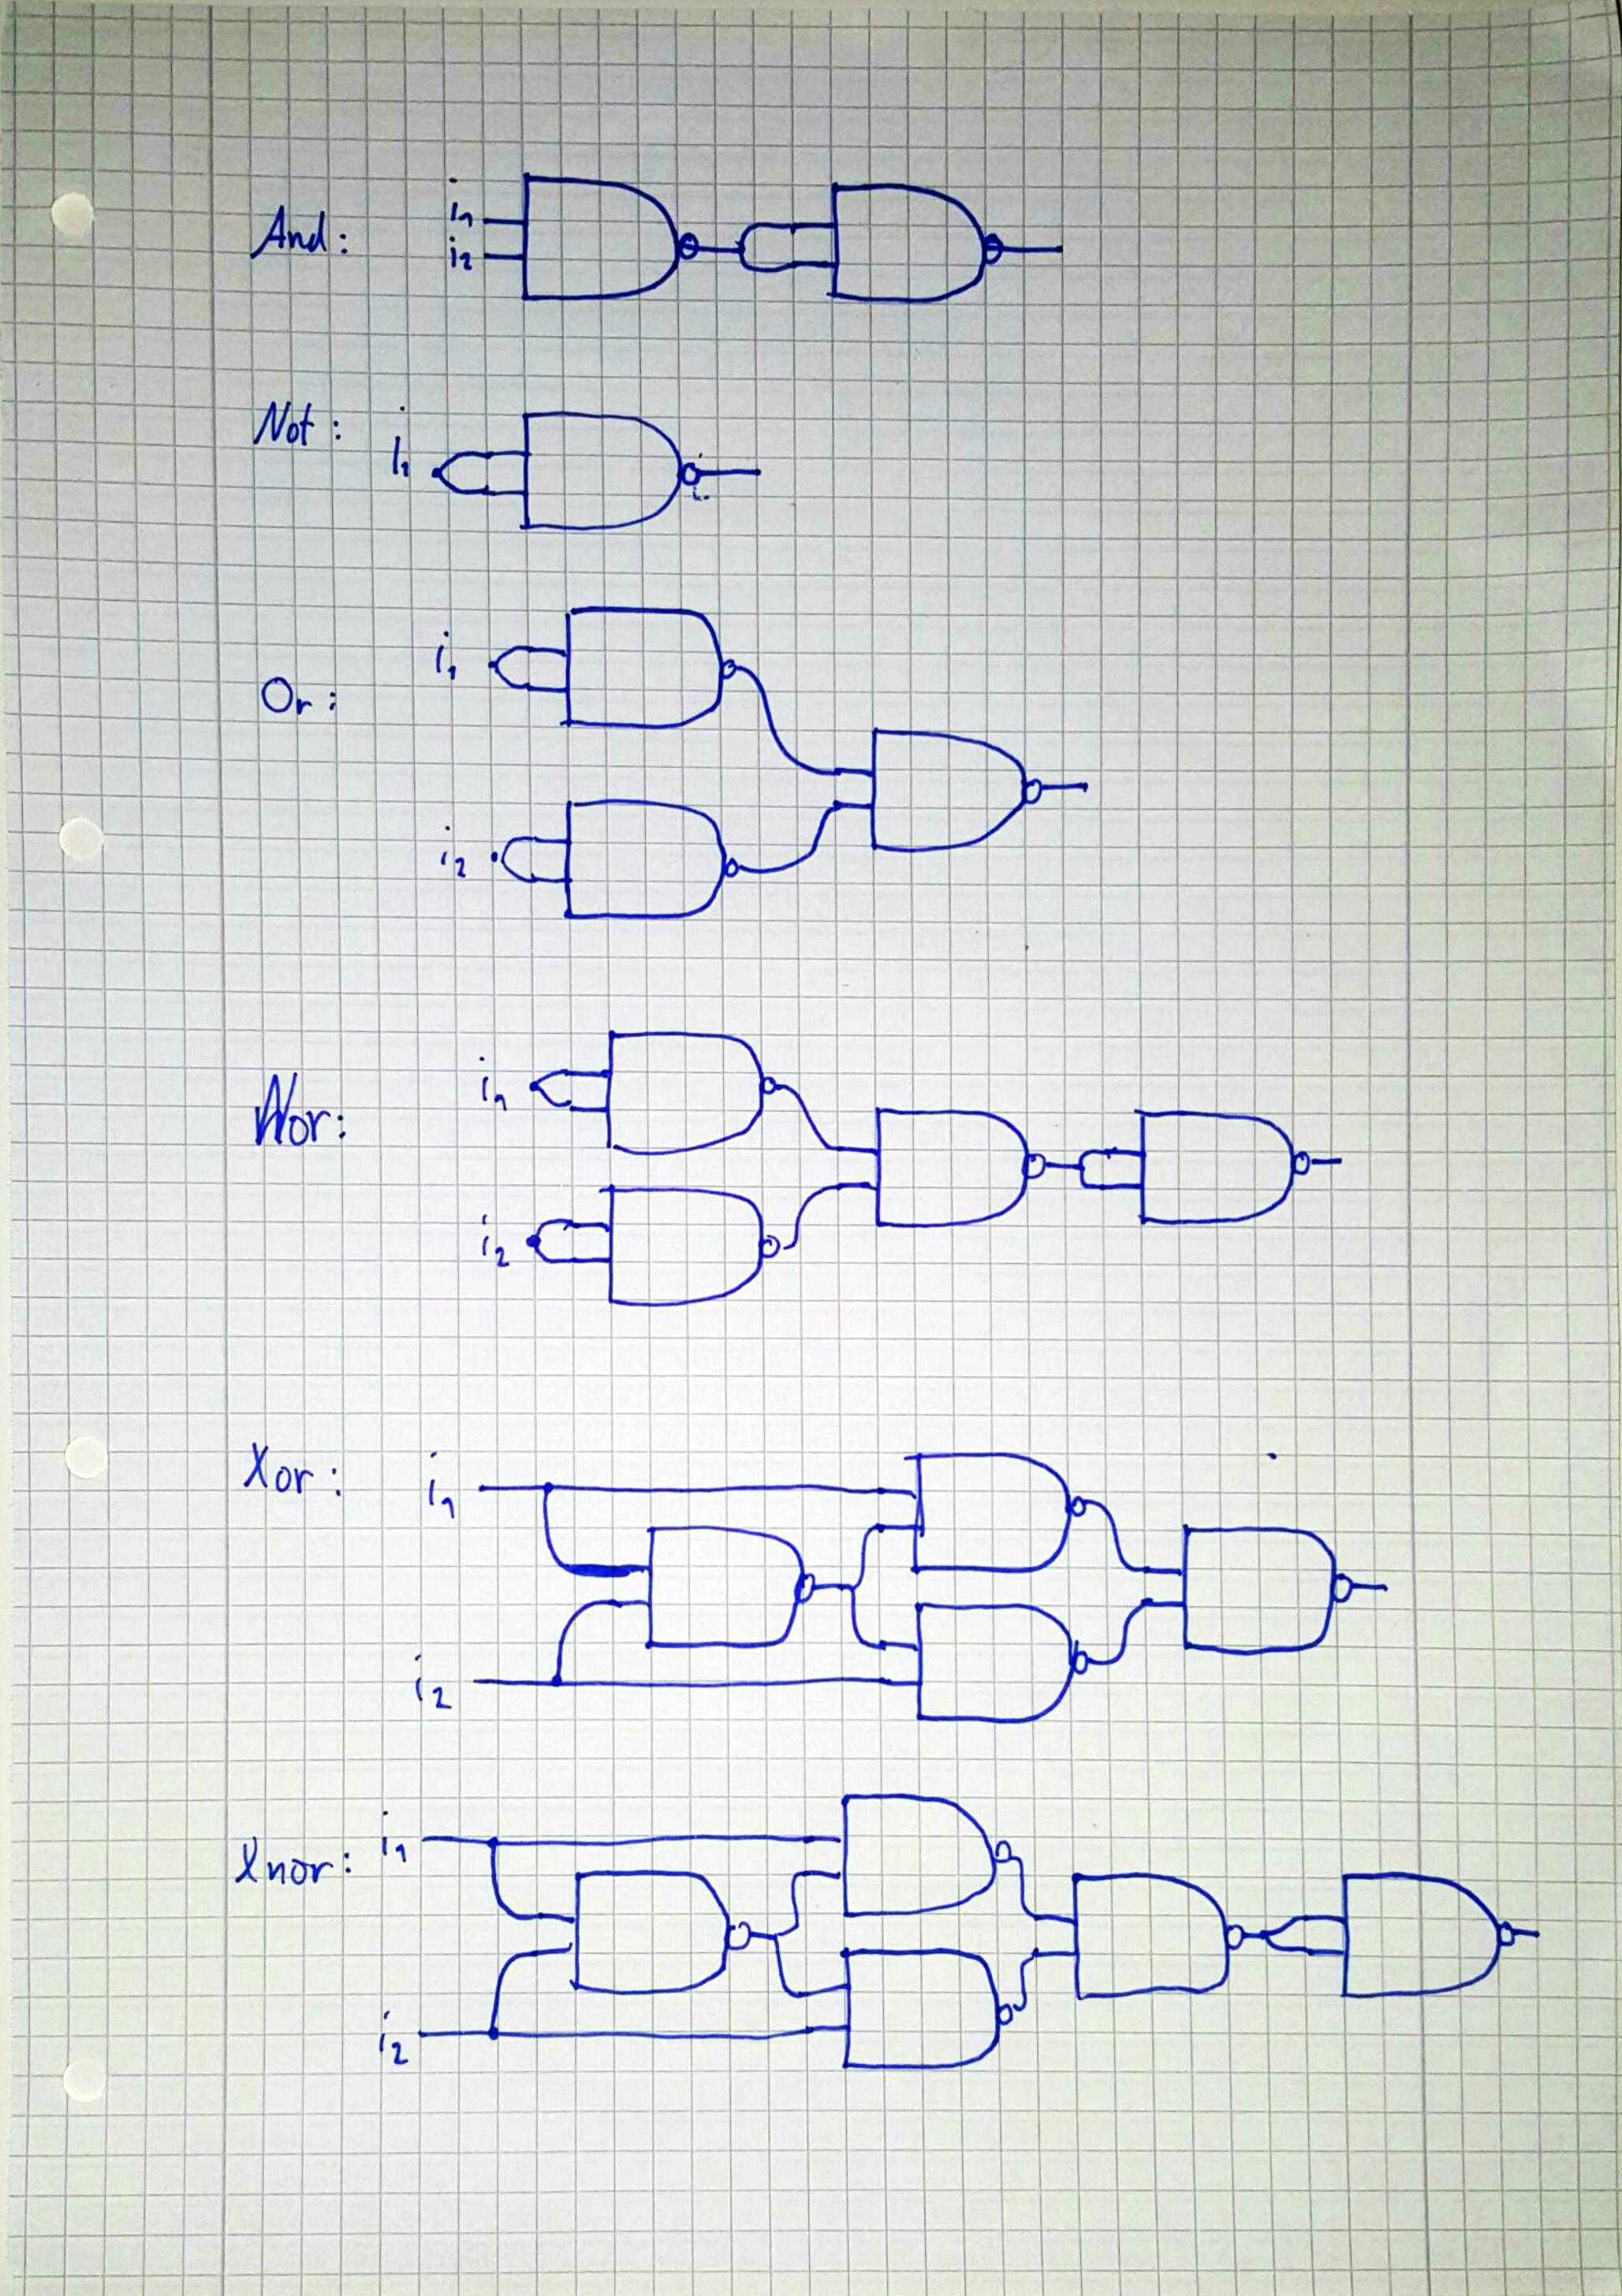 And: i₁
i₂
Not: i₁
i₁
Or:
i₂
i₁
Nor:
i₂
Xor: i₁
i₂
Xnor: i₁
i₂